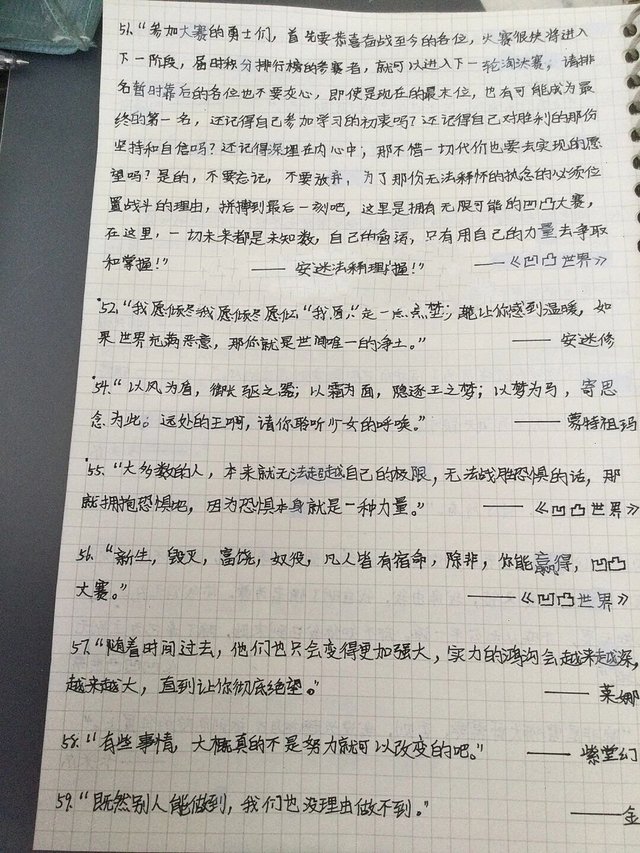 51.“参加大赛的勇士们，首先要恭喜奋战至今的各位，大赛很快将进入
下一阶段，届时积分排行榜的参赛者，就可以进入下一轮淘汰赛，请排
名暂时靠后的各位也不要灰心，即使是现在的最末位，也有可能成为最
终的第一名，还记得自己参加学习的初衷吗？还记得自己对胜利的那份
坚持和自信吗？还记得深埋在内心中；那不惜一切代价也要去实现的愿
望吗？是的，不要忘记，不要放弃，为了那份无法释怀的执念的必须位
置战斗的理由，拼搏到最后一刻吧，这里是拥有无限可能的凹凸大赛，
在这里，一切未来都是未知数，自己的，只有用自己的力量去争取
和掌握！” —— 安迷法释理握！” ——《凹凸世界》
52.“我愿倾尽我愿倾尽愿“我愿走一点点梦；能让你感到温暖，如
果世界充满恶意，那你就是世间唯一的净土。” —— 安迷修
54.“以风为盾，御驱之器；以霜为面，隐逐王之梦；以梦为马，寄思
念为此。远处的王啊，请你聆听少女的呼唤。” —— 蒙特祖玛
55.“大多数的人，本来就无法超越自己的极限，无法战胜恐惧的话，那
就拥抱恐惧吧，因为恐惧本身就是一种力量。” ——《凹凸世界》
56.“新生，毁灭，富饶，奴役，凡人皆有宿命，除非，你能赢得，凹凸
大赛。” ——《凹凸世界》
57.“随着时间过去，他们也只会变得更加强大，实力的鸿沟会越来越深，
越来越大，直到让你彻底绝望。” —— 莱娜
58.“有些事情，大概真的不是努力就可以改变的吧。” —— 紫堂幻
59.“既然别人能做到，我们也没理由做不到。” —— 金